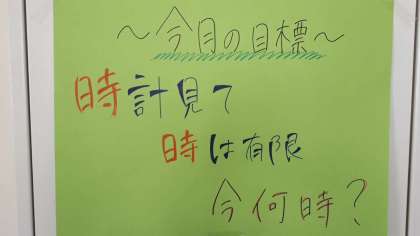 ～今月の目標～
時計見て
時は有限
今何時？